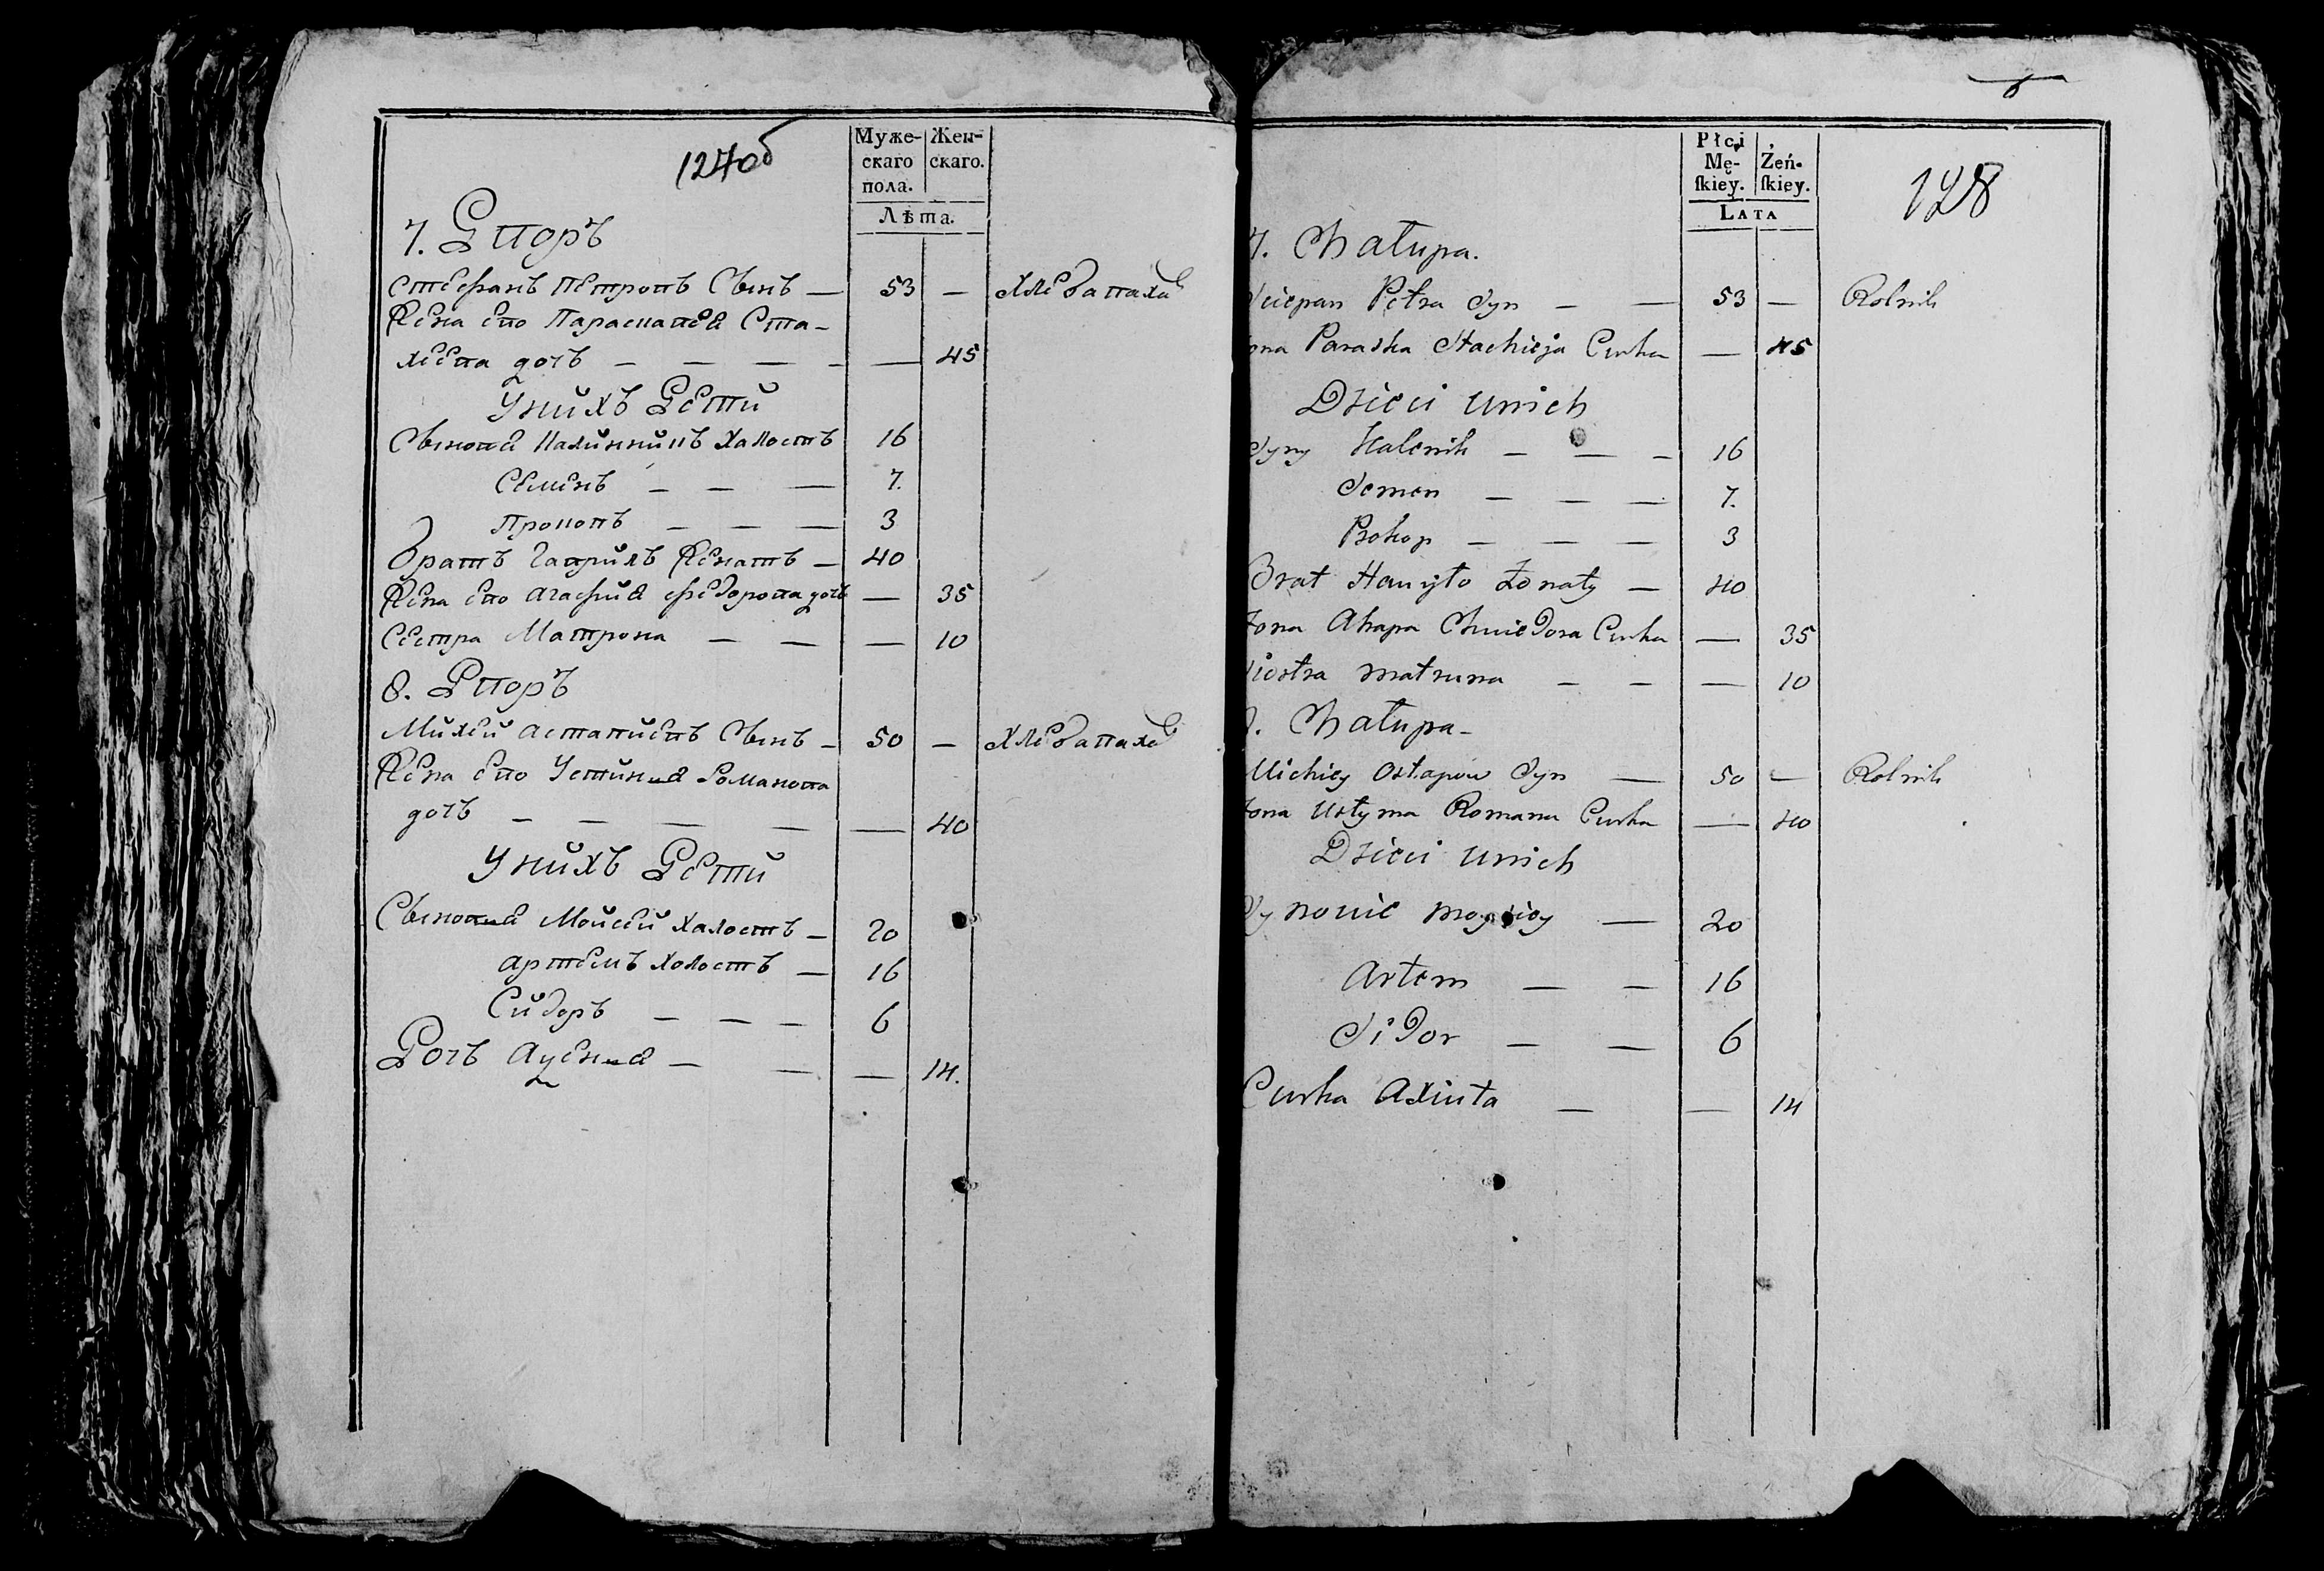 127об
Муже-
скаго
пола.
Жен-
скаго.
Лѣта.
7. Дворъ
Стефанъ Петровъ Сынъ — 53 — Хлебапахе
Жена его Параскавея Ста-
хеева дочъ — — — — — 45
Унихъ Дети
Сыновей Калинникъ Халостъ 16
Семенъ — — — 7.
Прокопъ — — — 3
Братъ Гаврилъ Женатъ — 40
Жена его Агафия Федорова дочь — 35
Сестра Матрона — — — 10
8. Дворъ
Михей Астапиевъ Сынъ — 50 — Хлебапахе
Жена его Устиния Романова
дочъ — — — — — 40
Унихъ Дети
Сыновей Мойсей Халостъ — 20
Артемъ Холостъ — 16
Сидоръ — — — 6
Дочъ — — — 14.
Płci
Mę-
ſkiey.
Żeń-
ſkiey.
Lata
128
7. Chałupa.
Sciepan Petra Syn — — 53 — Rolnik
ona Paraska Stachieja Curka — 45
Dzieci unich
Syny Kalenik — — — 16
Semen — — — 7.
Prokop — — — 3
Brat Hawryło Żonaty — 40
Żona Ahapa Chwiedora Curka — 35
Siostra Matruna — — — 10
8. Chałupa —
Michiey Ostapow Syn — 50 — Rolnik
Żona Ustyma Romana Curka — 40
Dzieci unich
Synowie Moysiey — 20
Artem — — 16
Sidor — — 6
Curka Axiuta — — 14